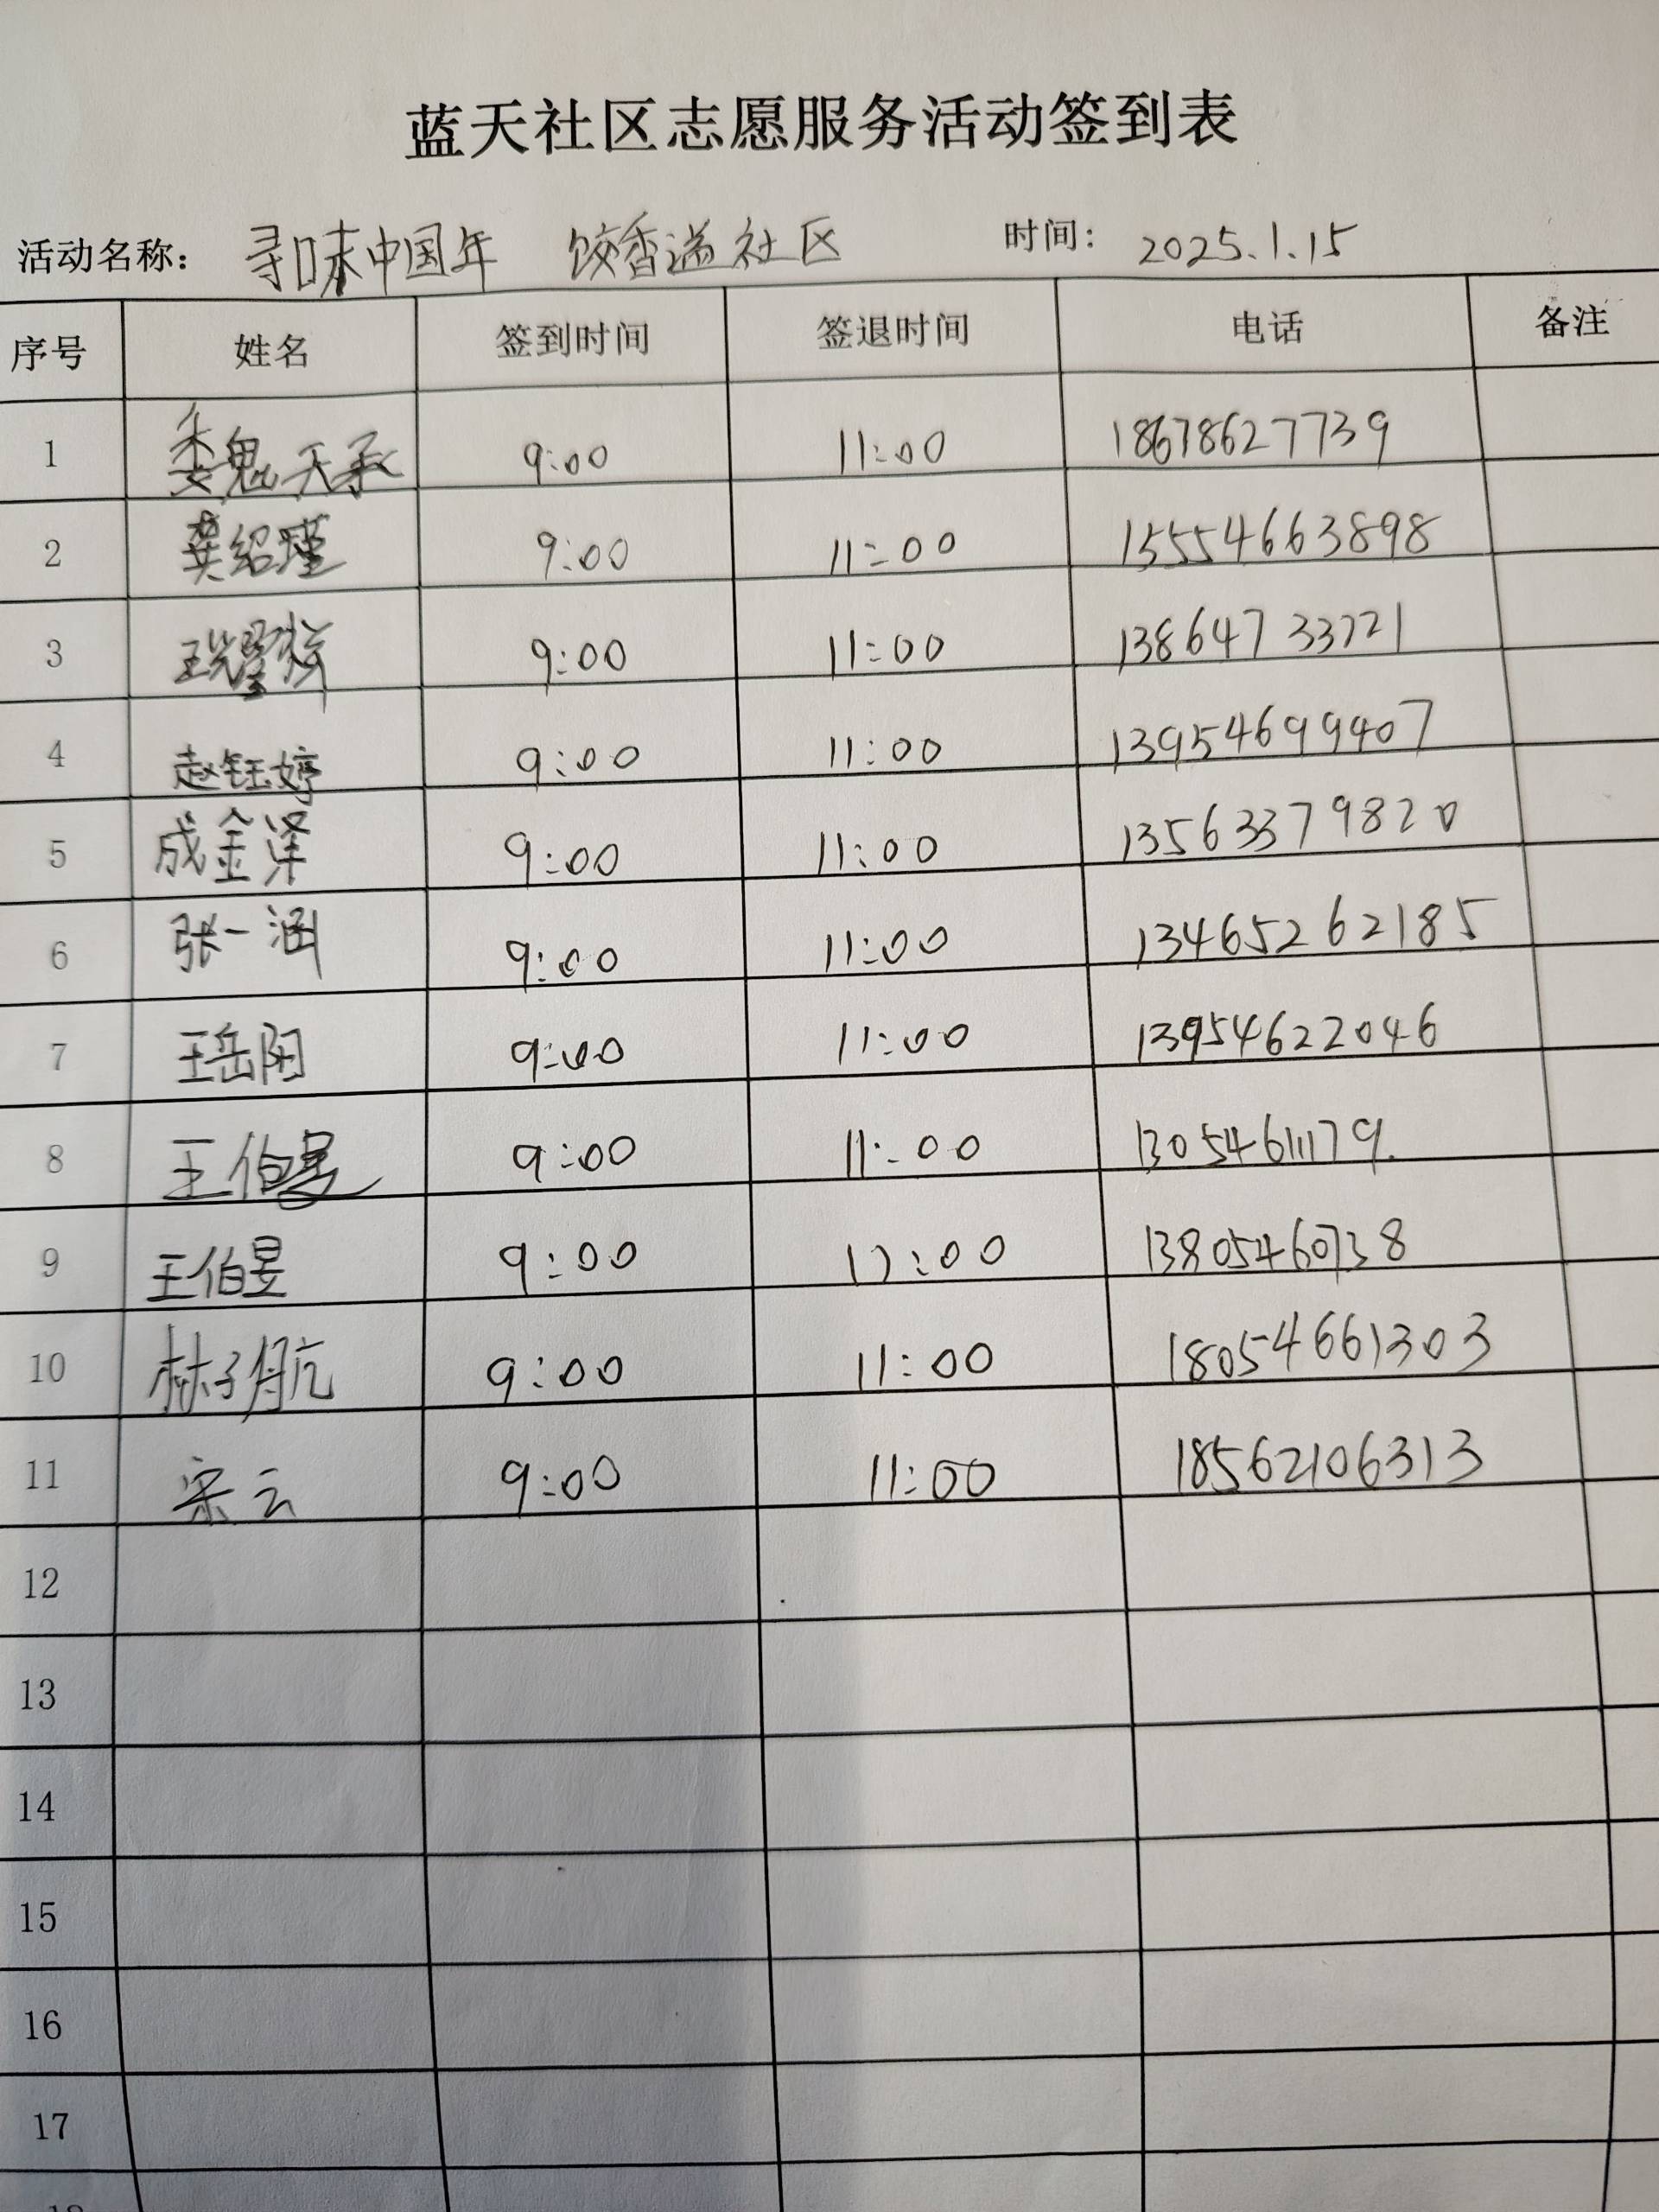 蓝天社区志愿服务活动签到表
活动名称: 寻味中国年 饺香溢社区 时间: 2025.1.15
序号 姓名 签到时间 签退时间 电话 备注
1 魏天承 9:00 11:00 18678627739
2 龚绍瑾 9:00 11:00 15554663898
3 9:00 11:00 13864733721
4 赵钰婷 9:00 11:00 13954699407
5 成金泽 9:00 11:00 13563379820
6 张一涵 9:00 11:00 13465262185
7 王岳阳 9:00 11:00 13954622046
8 王伯 9:00 11:00 13054611179.
9 王伯昱 9:00 11:00 13805460738
10 林子航 9:00 11:00 18054661303
11 宋云 9:00 11:00 18562106313
12
13
14
15
16
17